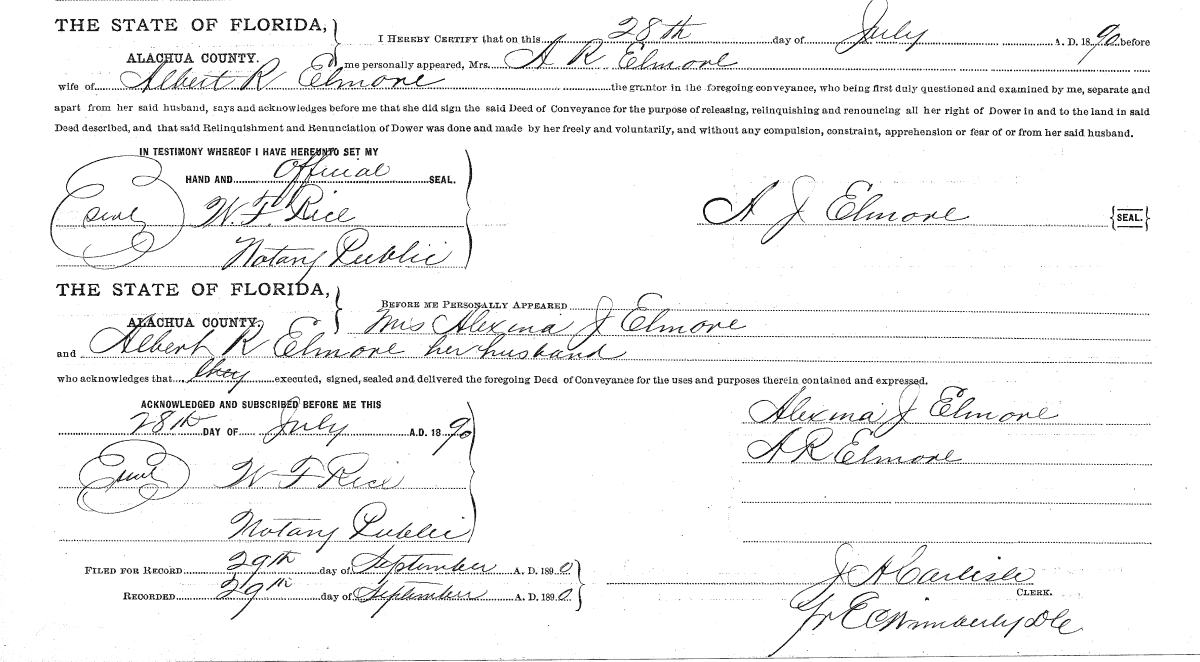 THE STATE OF FLORIDA,
ALACHUA COUNTY.
I HEREBY CERTIFY that on this 28th day of July A. D. 1890 before
me personally appeared, Mrs. A R Elmore
wife of Albert R Elmore the grantor in the foregoing conveyance, who being first duly questioned and examined by me, separate and
apart from her said husband, says and acknowledges before me that she did sign the said Deed of Conveyance for the purpose of releasing, relinquishing and renouncing all her right of Dower in and to the land in said
Deed described, and that said Relinquishment and Renunciation of Dower was done and made by her freely and voluntarily, and without any compulsion, constraint, apprehension or fear of or from her said husband.
IN TESTIMONY WHEREOF I HAVE HEREUNTO SET MY
HAND AND Official SEAL.
Seal W. F. Rice
A J Elmore {SEAL.}
Notary Public
THE STATE OF FLORIDA,
ALACHUA COUNTY.
BEFORE ME PERSONALLY APPEARED
Mrs Alexina J Elmore
and Albert R Elmore her husband
who acknowledges that they executed, signed, sealed and delivered the foregoing Deed of Conveyance for the uses and purposes therein contained and expressed.
ACKNOWLEDGED AND SUBSCRIBED BEFORE ME THIS
28th DAY OF July A.D. 1890
Alexina J Elmore
A R Elmore
Seal W F Rice
Notary Public
FILED FOR RECORD 29th day of September A. D. 1890
RECORDED 29th day of September A. D. 1890
J A Carlisle
CLERK.
Pr E C Wimberly DC